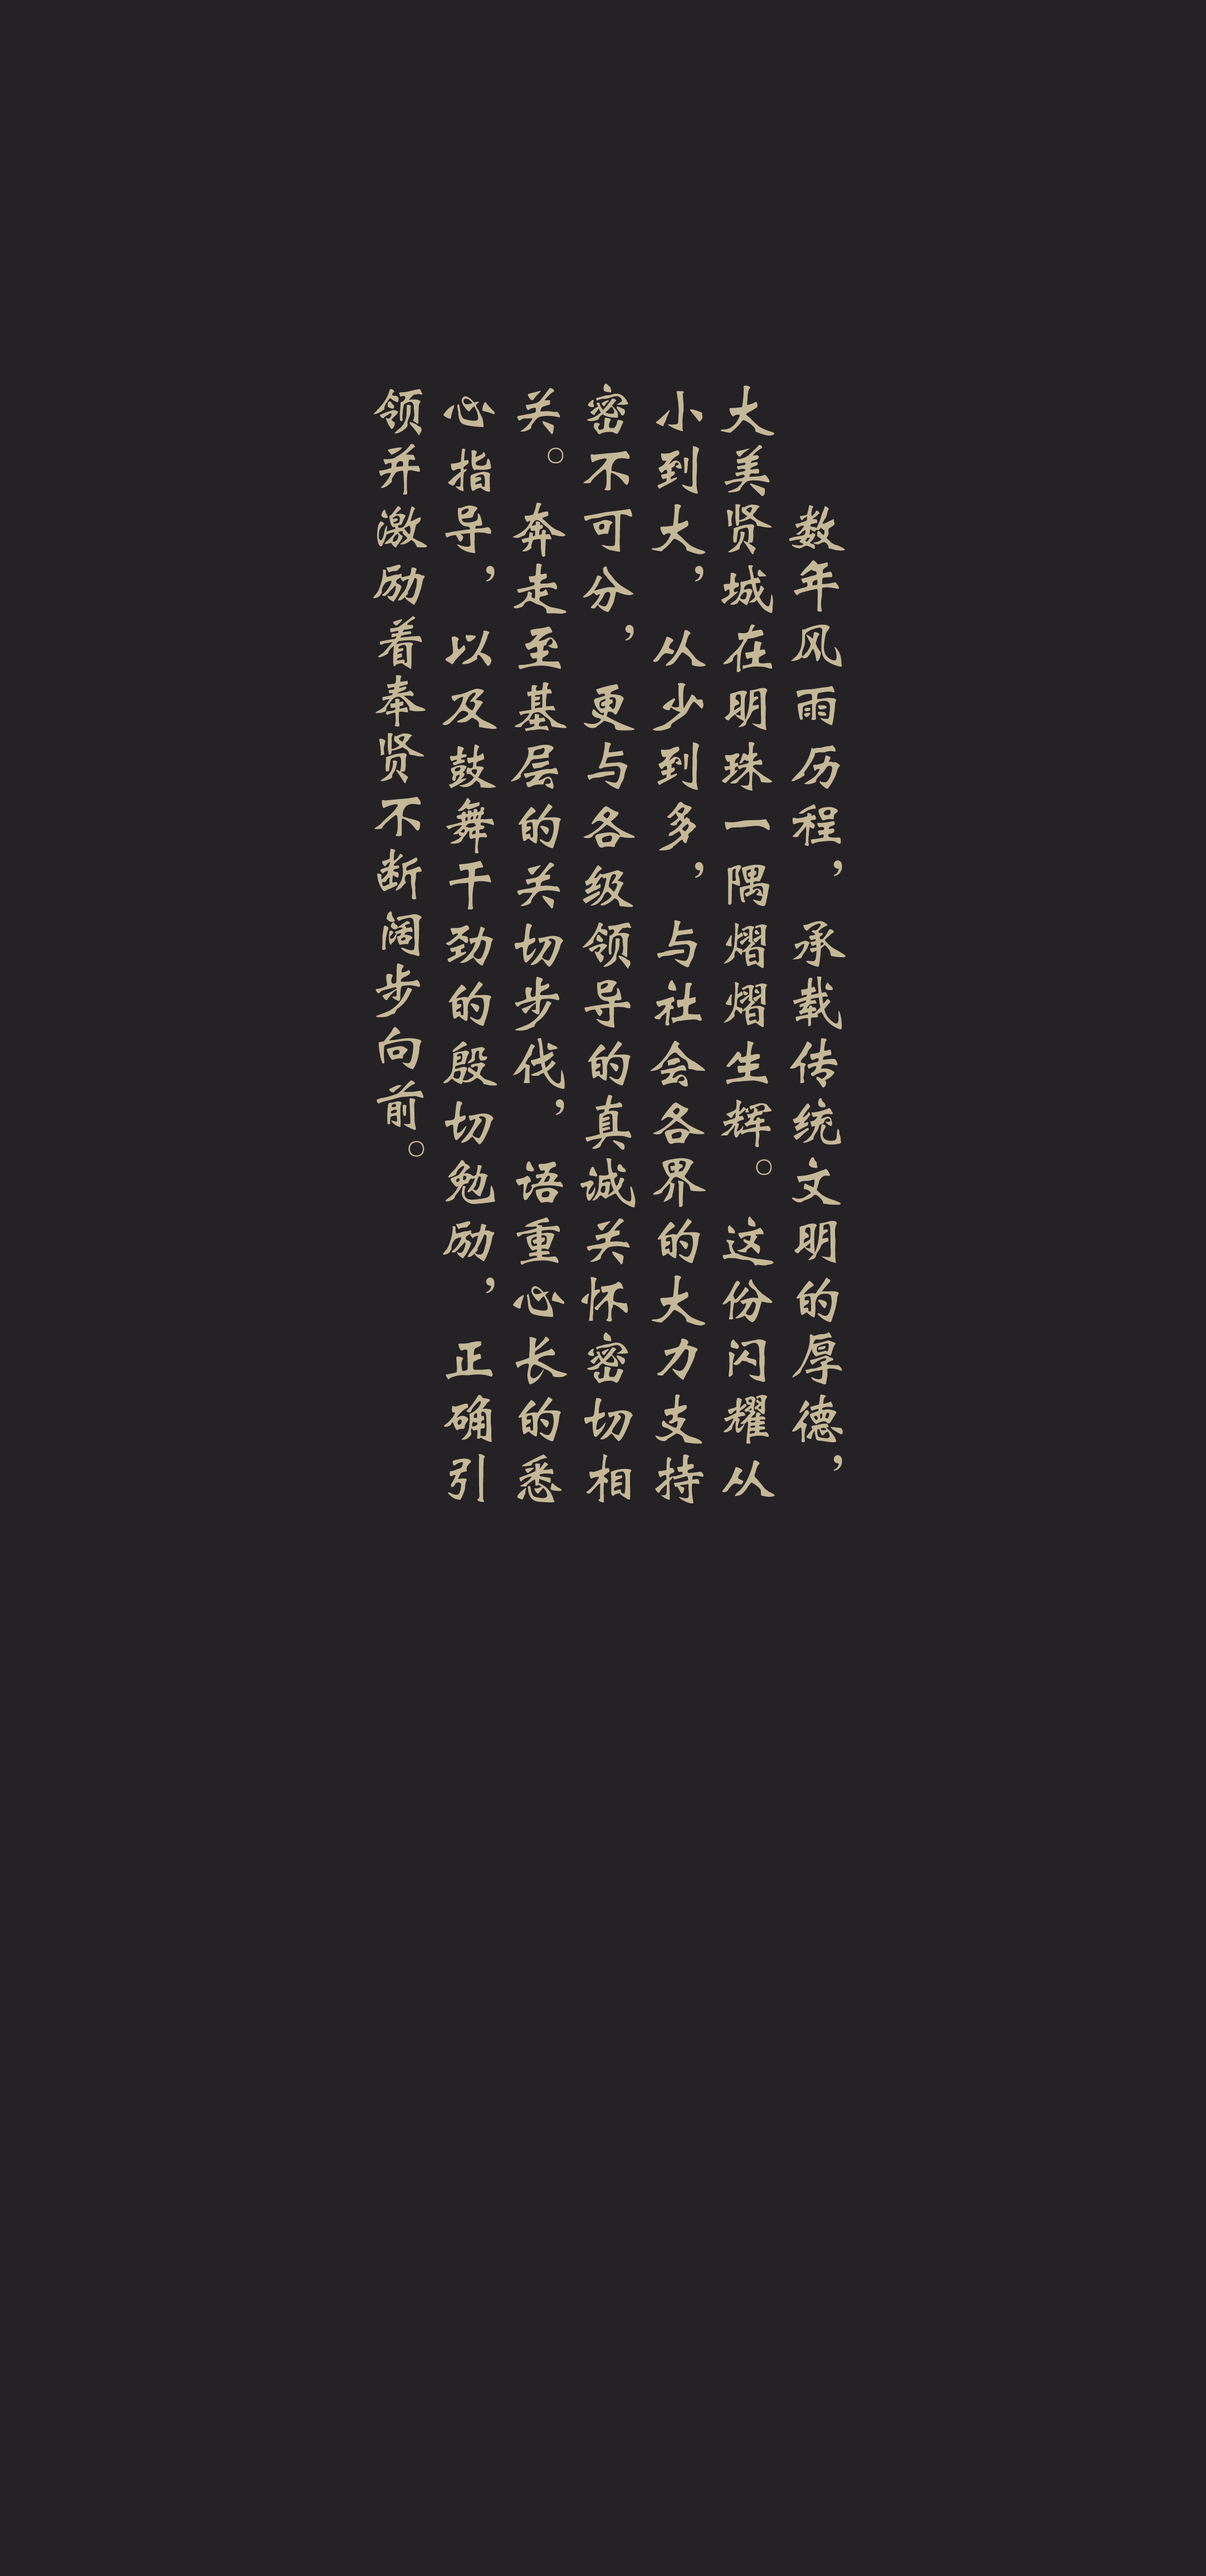 数年风雨历程，承载传统文明的厚德，
大美贤城在明珠一隅熠熠生辉。这份闪耀从
小到大，从少到多，与社会各界的大力支持
密不可分，更与各级领导的真诚关怀密切相
关。奔走至基层的关切步伐，语重心长的悉
心指导，以及鼓舞干劲的殷切勉励，正确引
领并激励着奉贤不断阔步向前。